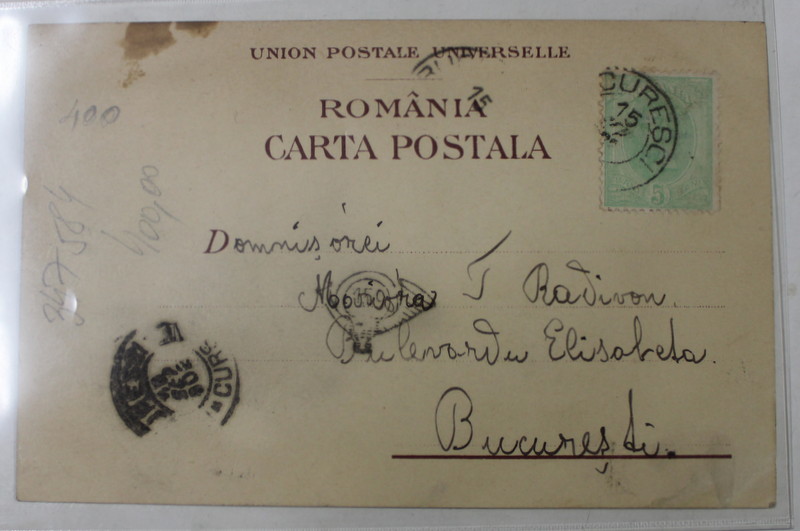 UNION POSTALE UNIVERSELLE
ROMÂNIA
CARTA POSTALA
CURESCI
15
15
5
400
400,00
367584
Domnișórei
T Radivon.
Bulevardu Elisabeta.
București.
CURE